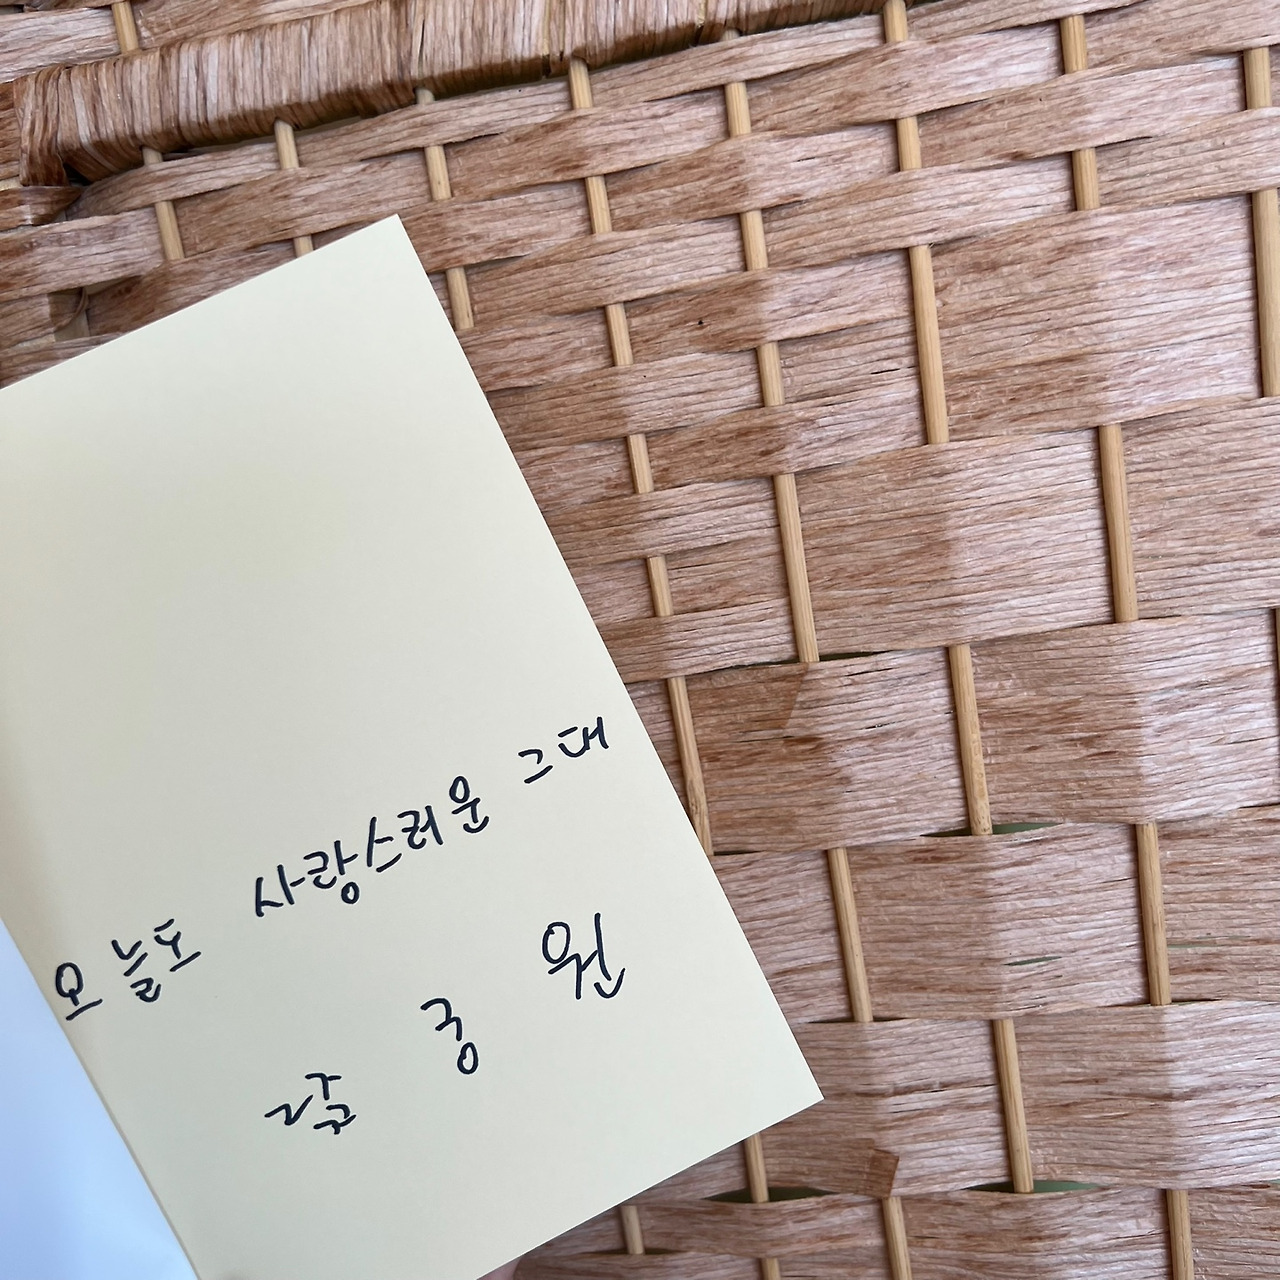 오늘도 사랑스러운 그대
남궁원